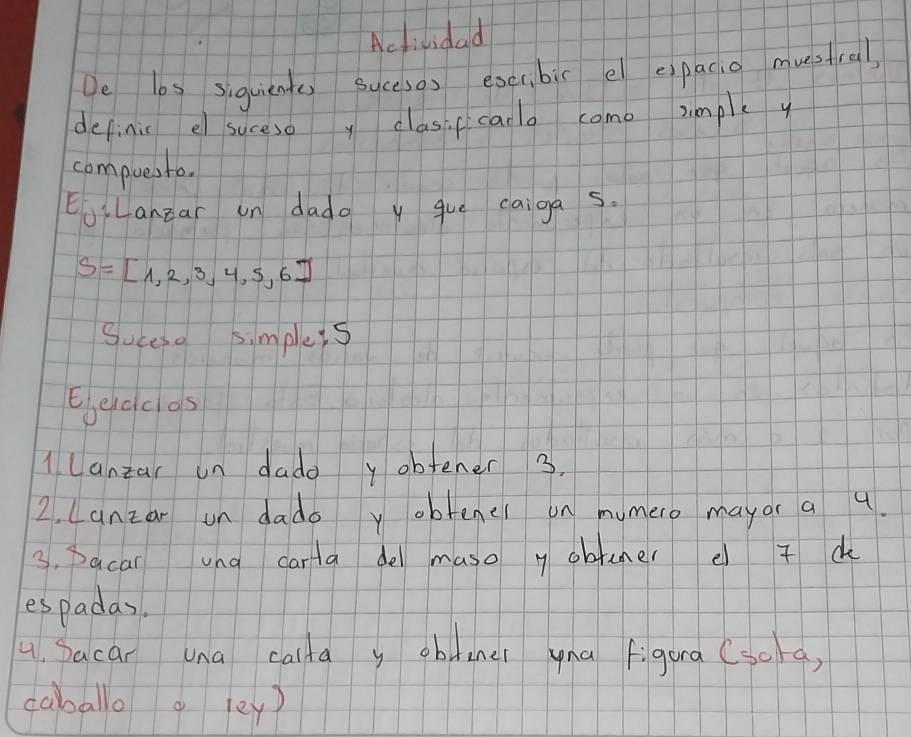 Actividad
De los siguientes sucesos escribir el espacio muestral,
definir el suceso y clasificarlo como simple y
compuesto.
Ej: Lanzar un dado y que caiga 5.
S=[1,2,3,4,5,6]
Suceso simple: 5
Ejercicios
1. Lanzar un dado y obtener 3.
2. Lanzar un dado y obtener un numero mayor a 4.
3. Sacar una carta del maso y obtener el 7 de
espadas.
4. Sacar una carta y obtener una figura (sota,
caballo o rey)